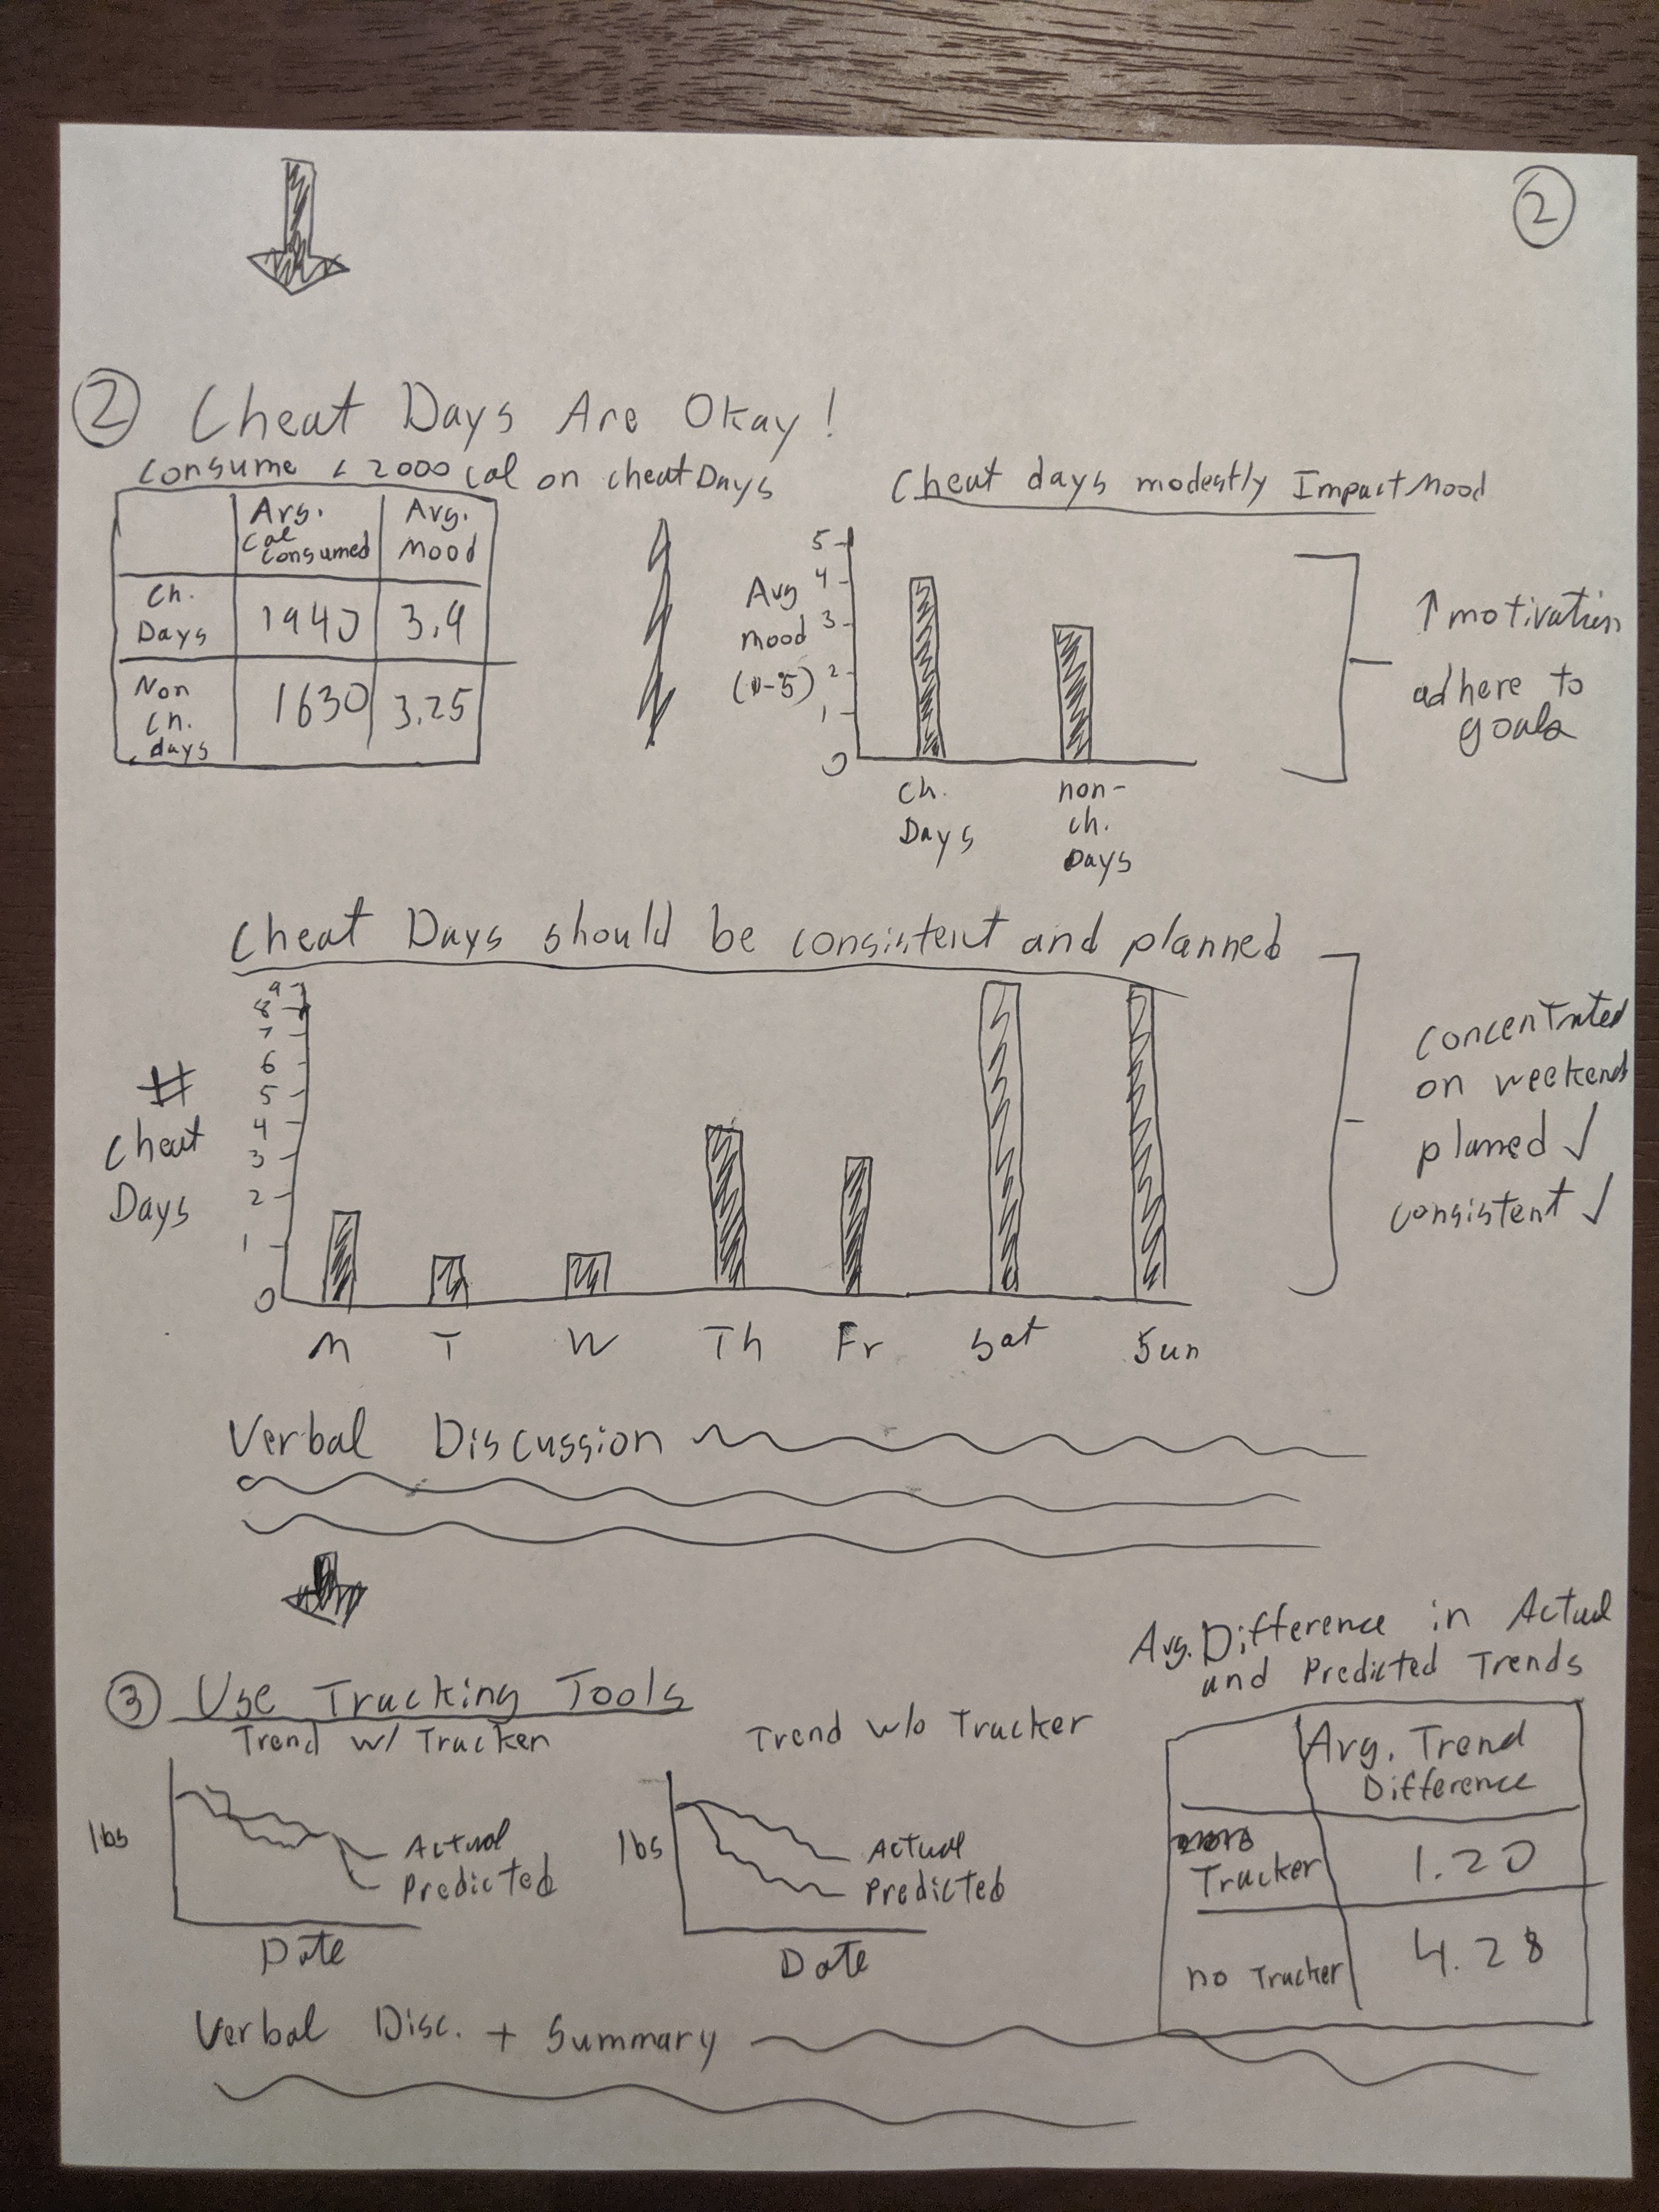 2
2 Cheat Days Are Okay!
Consume < 2000 Cal on cheat Days
Avg. Cal Consumed
Avg. Mood
Ch. Days
1940
3.9
Non Ch. days
1630
3.25
Cheat days modestly Impact Mood
Avg
Mood
(0-5)
5
4
3
2
1
0
Ch.
Days
non-
ch.
Days
↑ motivation
adhere to
goals
Cheat Days should be consistent and planned
#
Cheat
Days
9
8
7
6
5
4
3
2
1
0
M T W Th Fr Sat Sun
Concentrated
on weekends
planned ✓
consistent ✓
Verbal Discussion
3 Use Tracking Tools
Trend w/ Tracker
lbs
Actual
Predicted
Date
Trend w/o Tracker
lbs
Actual
Predicted
Date
Avg. Difference in Actual
and Predicted Trends
Avg. Trend
Difference
Tracker
1.20
no Tracker
4.28
Verbal Disc. + Summary